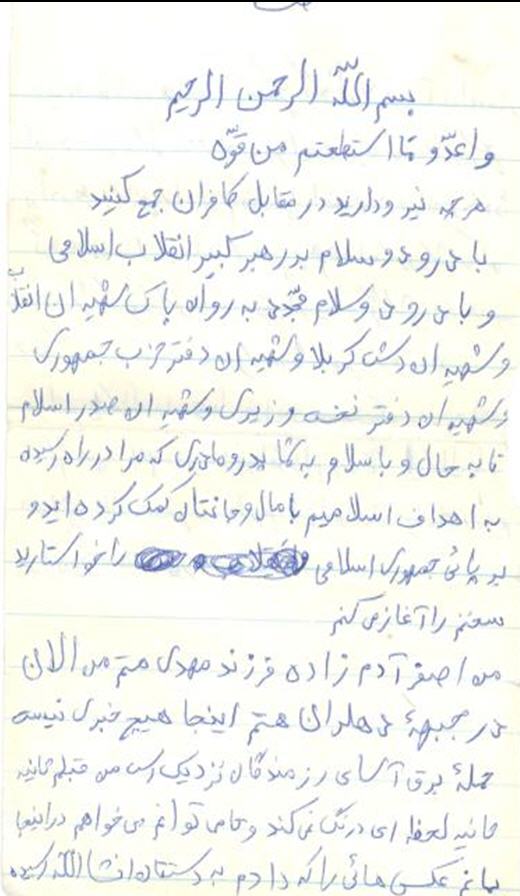 بسم الله الرحمن الرحیم
واعدّو مااستطعتم من قوّه
هرچه نیرو دارید در مقابل کافران جمع کنید
با درود و سلام بر رهبر کبیر انقلاب اسلامی
و با درود و سلام مجدد به روان پاک شهیدان انقلاب
و شهیدان دشت کربلا و شهیدان دفتر حزب جمهوری
و شهیدان دفتر نخست وزیری و شهیدان صدر اسلام
تا به حال و با سلام به شما پدر و مادری که مرا در راه رسیدن
به اهداف اسلامیم با مال و جانتان کمک کرده اید و
بر پائی جمهوری اسلامی را خواستارید
سخنم را آغاز می کنم
من اصغر آدم زاده فرزند مهدی هستم من الان
در جبههٔ دهلران هستم اینجا هیچ خبری نیست
حملهٔ برق آسای رزمندگان نزدیک است من قبلم
ثانیه لحظه ای درنگ نمی کند و تا می توانم می خواهم در اینجا
بمانم عکس هائی را که دادم به دستتان انشاالله رسیده